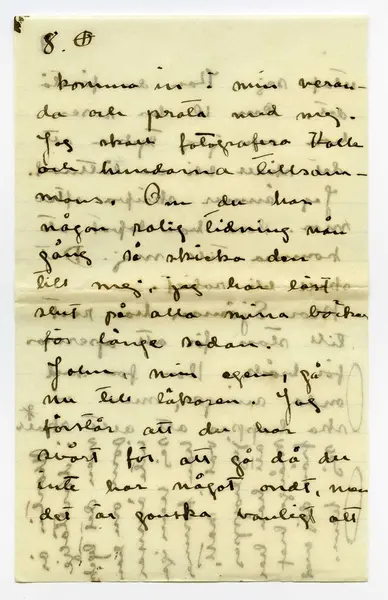 8.
komma in i min veran-
da och prata med mej.
Jag skall fotografera Kalle
och hundarna tillsam-
mans. Om du har
någon rolig tidning nån
gång så skicka den
till mej, jag har läst
slut på alla mina böcker
för länge sedan.
John, min egen, gå
nu till läkaren. Jag
förstår att du har
svårt för att gå då du
inte har något ondt, men
det är ganska vanligt att